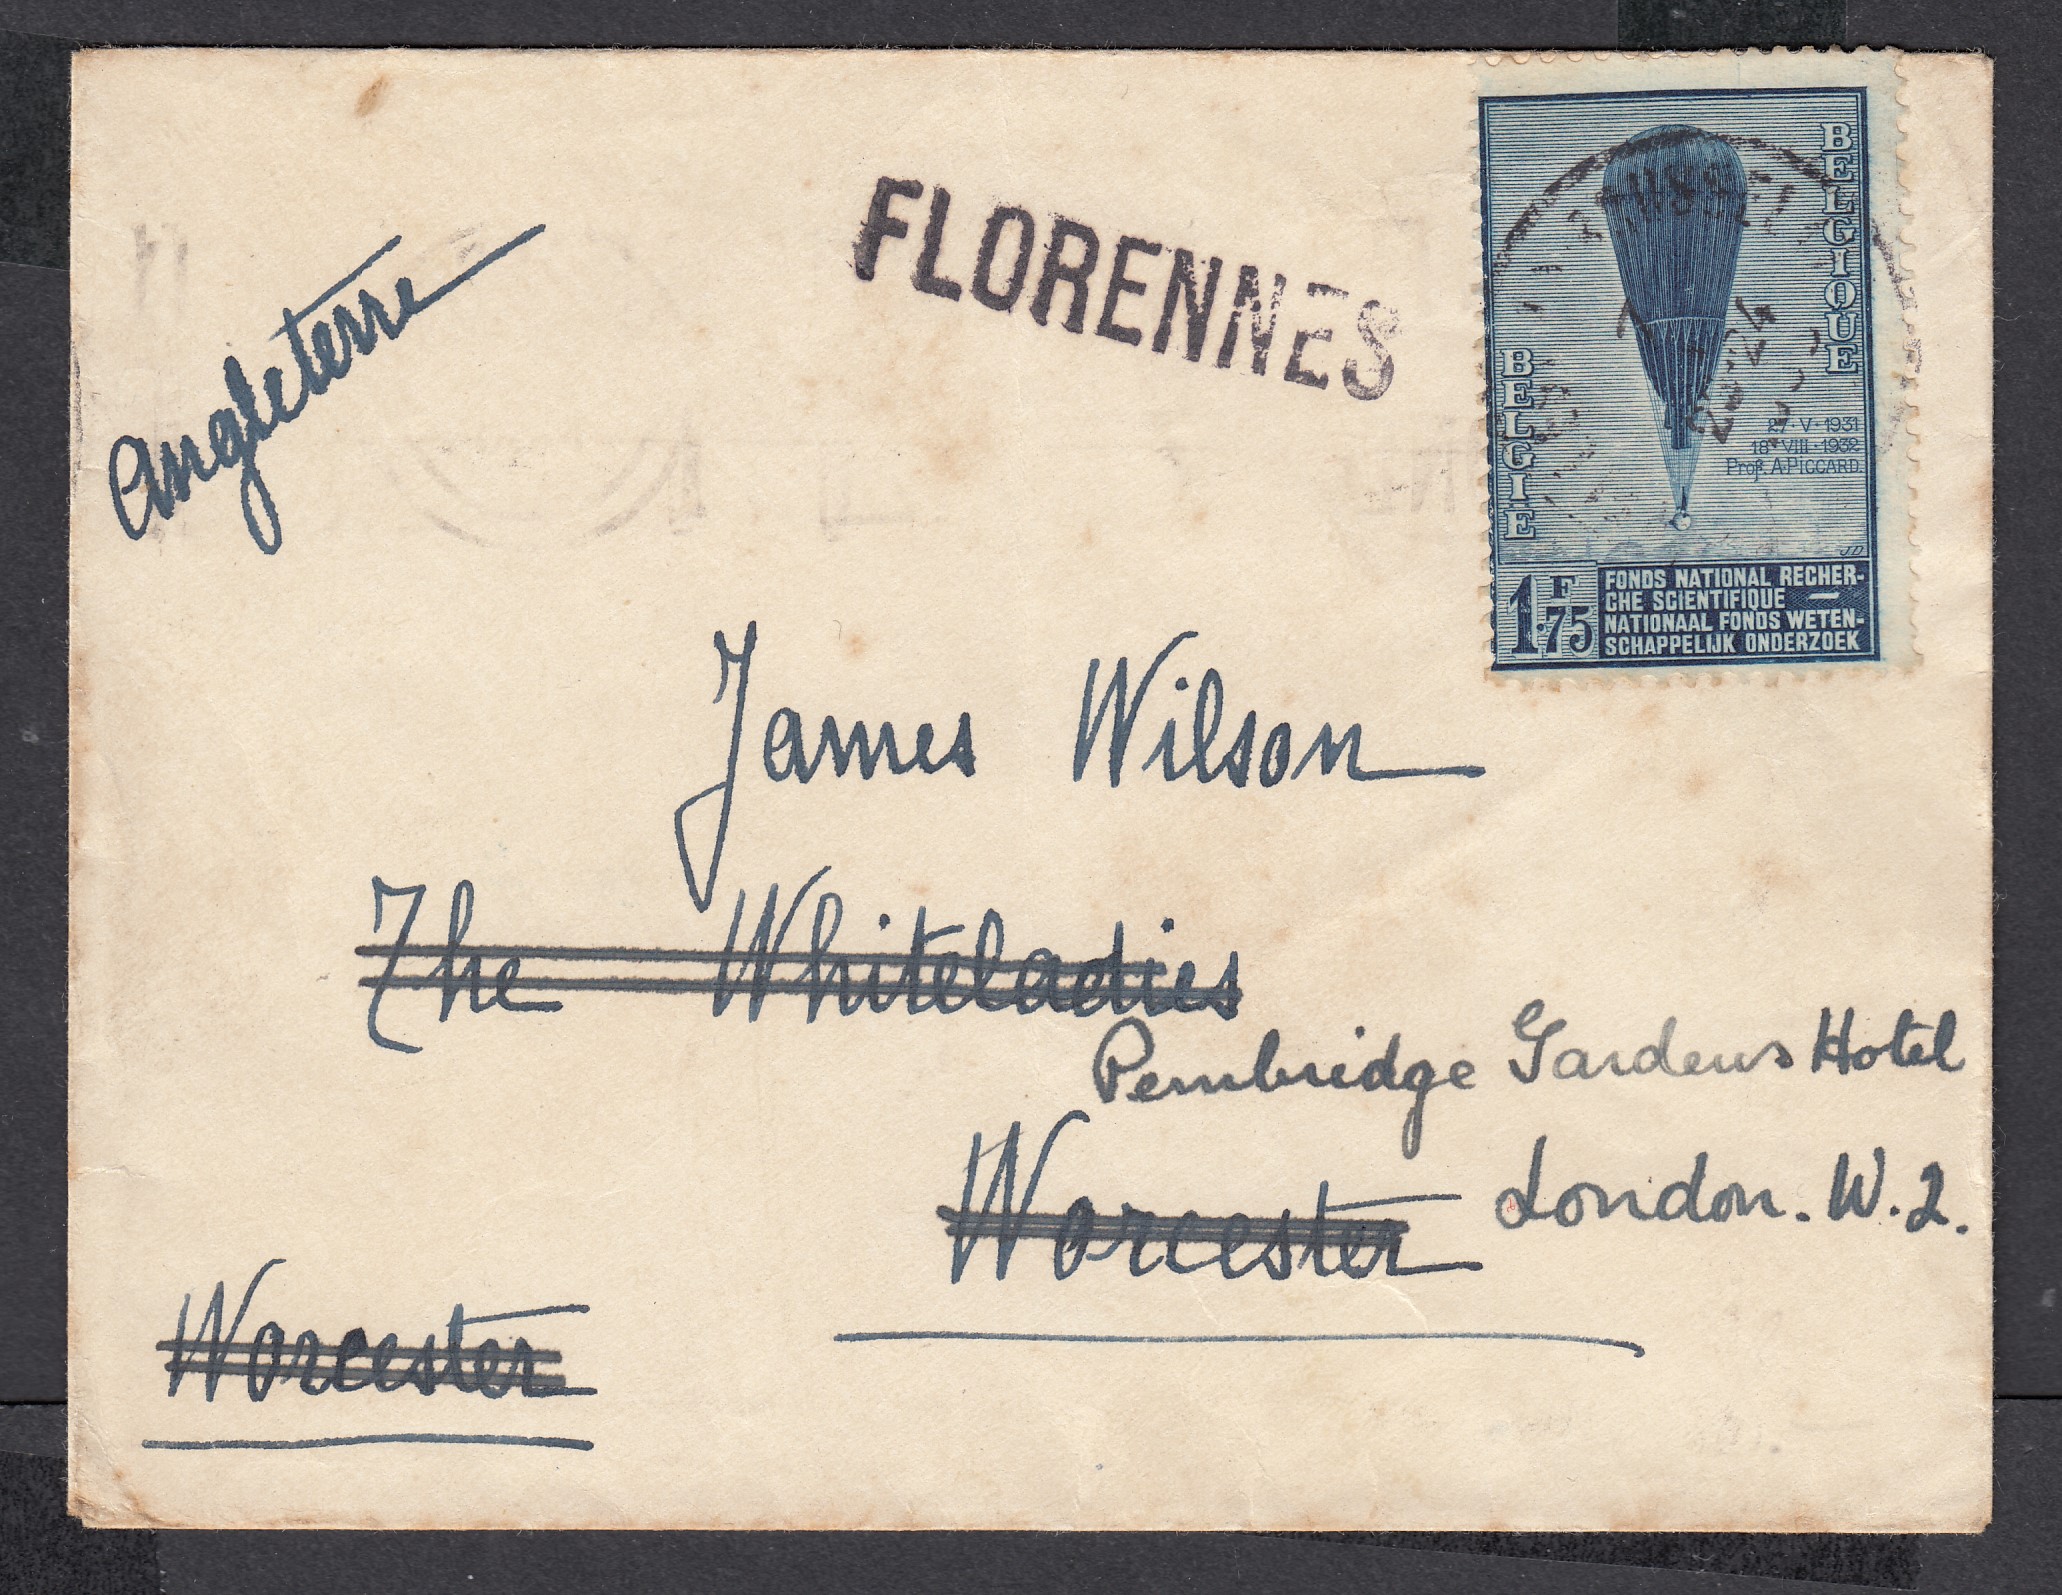 Angleterre
FLORENNES
BELGIQUE
BELGIE
27·V·1931
18·VIII·1932
Prof. A. PICCARD
JD
1F.75
FONDS NATIONAL RECHER-
CHE SCIENTIFIQUE —
NATIONAAL FONDS WETEN-
SCHAPPELIJK ONDERZOEK
James Wilson
The Whiteladies
Pembridge Gardens Hotel
Worcester
London. W.2.
Worcester